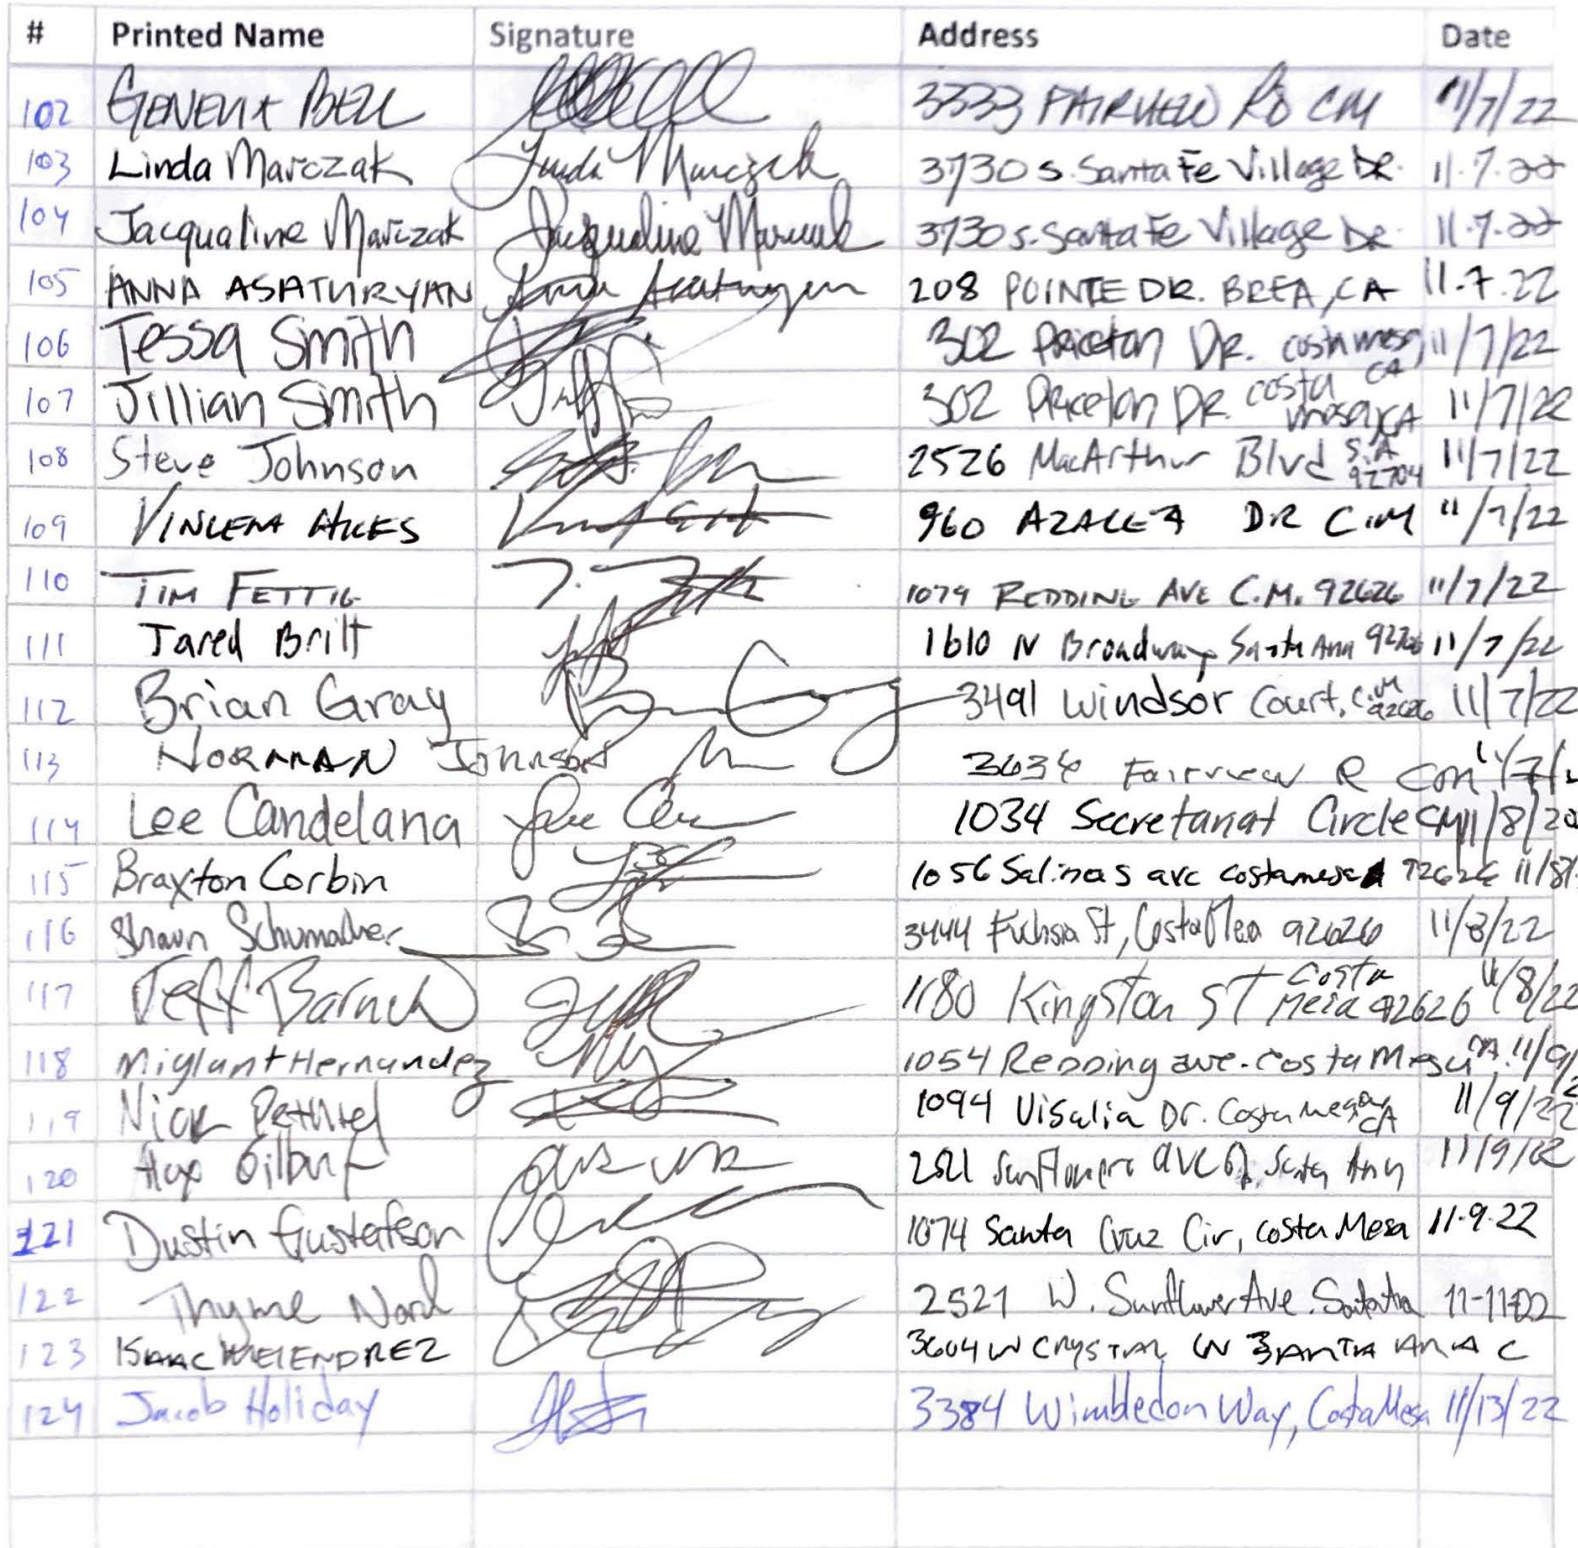 # Printed Name Signature Address Date
102 BELL 3333 FAIRVIEW RD CM 11/7/22
103 Linda Marczak Linda Marczak 3730 S. Santa Fe Village DR. 11.7.22
104 Jacqualine Marczak Jacqualine Marczak 3730 S. Santa Fe Village DR. 11.7.22
105 ANNA ASATURYAN Anna Asaturyan 208 POINTE DR. BREA, CA 11.7.22
106 Tessa Smith 302 DR. costa mesa CA 11/7/22
107 Jillian Smith 302 DR. costa mesa, CA 11/7/22
108 Steve Johnson 2526 MacArthur Blvd S.A 92704 11/7/22
109 960 AZALEA DR C.M 11/7/22
110 TIM FETTIG 1079 REDDING AVE C.M. 92626 11/7/22
111 Jared Britt 1610 N Broadway Santa Ana 92706 11/7/22
112 Brian Gray 3491 Windsor Court, C.M 92626 11/7/22
113 NORMAN Johnson Fairview R
114 Lee Candelana 1034 Secretariat Circle CM 11/8/20
115 Braxton Corbin 1056 Salinas ave costamesa 92626 11/8/
116 Shawn Schumacher 3444 Fuchsia St, Costa Mesa 92626 11/8/22
117 Jeff 1180 Kingston ST Costa Mesa 92626 11/8/22
118 Hernandez 1054 Redding ave. Costa Mesa CA. 11/9/2
119 Nick 1094 Visalia Dr. Costa mesa CA 11/9/22
120 Ave Santa Ana 11/9/22
121 Dustin Gustafson 1074 Santa Cruz Cir, costa Mesa 11.9.22
122 Thyme 2521 W. Sunflower Ave. 11-11-22
123 ISAAC MELENDREZ 3604 W CRYSTAL LN SANTA ANA C
124 Jacob Holiday 3384 Wimbledon Way, Costa Mesa 11/13/22